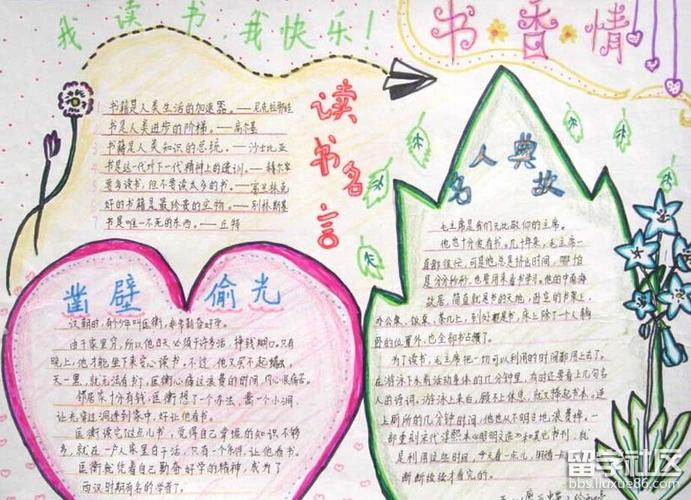 我读书,我快乐!
书香情
读书名言
1 书籍是人类生活的加速器。——尼克拉耶娃
2 书是人类进步的阶梯。——高尔基
3 书籍是人类知识的总统。——沙士比亚
4 书是这一代对下一代精神上的遗训。——赫尔岑
5 要多读书,但不要读太多的书。——富兰林克
6 好的书籍是最珍贵的实物。——别林斯基
7 书是唯一不死的东西。——丘特
凿壁偷光
汉朝时,有个少年叫匡衡,非常勤奋好学。
由于家里穷,所以他白天必须干许多活,挣钱糊口。只有
晚上,他才能坐下来安心读书。不过,他又买不起蜡烛,
天一黑,就无法看书了,匡衡心痛这浪费的时间,内心很痛苦。
邻居家十分有钱,匡衡想了一个办法,凿一个小洞,
让光穿过洞透到家中,好让他看书。
匡衡读完
书,觉得自己掌握的知识不够
多,就在一户人家里干活,只有一个条件,让他看书。
匡衡就凭着自己勤奋好学的精神,成为了
西汉时期有名的学者了。
名人典故
毛主席是我们无比敬仰的主席。
他也十分爱看书。几十年来,毛主席一
直都很忙,可是他总是挤出时间,哪怕
是分分秒秒,也要用来看书学习。他的中南海
故居,简直就是书的天地,卧室的书架上,
办公桌、饭桌、茶几上,到处都是书,床上除了一个人躺
卧的位置外,也全和书占领了。
为了读书,毛主席把一切可以利用的时间都用上去了。
在游泳下水前活动身体的几分钟里,有时还要看上几句名
人的诗词。游泳上来后,顾不上休息,就又捧起书本。连
上厕所的几分钟时间,他也从不白白地浪费掉。一
部重刻宋代淳熙本《昭明文选》和其它书刊,就
是利用这些时间,今天看一点儿,明天看一
断断续续才看完的。
留学社区
bbs.liuxue86.com